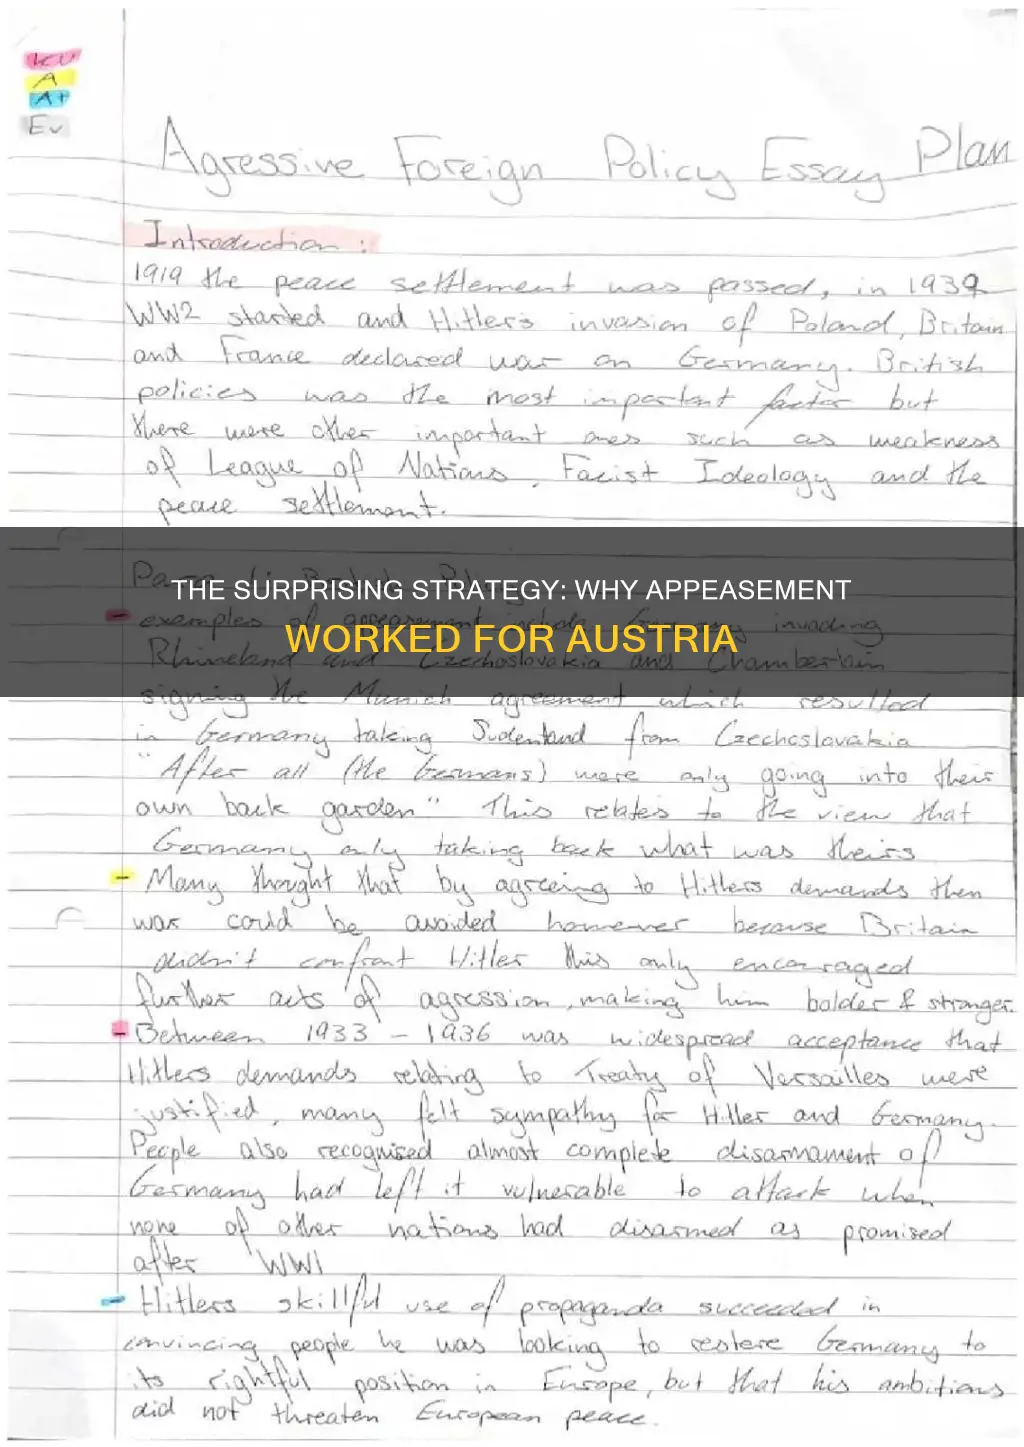 KU
A
A+
Ev
Agressive Foreign Policy Essay Plan
Introduction :
1919 the peace settlement was passed, in 1939
WW2 started and Hitler's invasion of Poland, Britain
and France declared war on Germany. British
policies was the most important factor but
there were other important ones such as weakness
of League of Nations, Facist Ideology and the
peace settlement.
THE SURPRISING STRATEGY: WHY APPEASEMENT
WORKED FOR AUSTRIA
- examples of appeasement include Germany invading
Rhineland and Czechoslovakia and Chamberlain
signing the Munich agreement which resulted
in Germany taking Sudentland from Czechoslovakia
"After all (the Germans) were only going into their
own back garden" This relates to the view that
Germany only taking back what was theirs
- Many thought that by agreeing to Hitlers demands then
war could be avoided however because Britain
didn't confront Hitler this only encouraged
further acts of agression, making him bolder & stronger.
- Between 1933 - 1936 was widespread acceptance that
Hitlers demands relating to Treaty of Versailles were
justified, many felt sympathy for Hitler and Germany.
People also recognised almost complete disarmament of
Germany had left it vulnerable to attack when
none of other nations had disarmed as promised
after WW1
- Hitlers skillful use of propaganda succeeded in
convincing people he was looking to restore Germany to
its rightful position in Europe, but that his ambitions
did not threaten European peace.